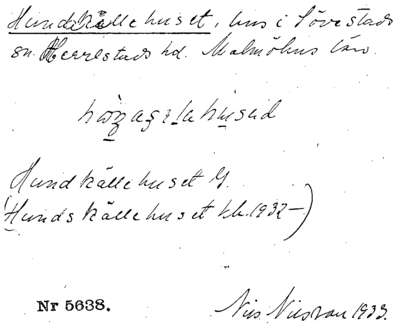 Hundskällehuset, hus i Sövestads
sn. Herrestads hd. Malmöhus län.
Hundkällehuset G.
(Hundskällehuset kb. 1932–)
Nr 5638.
Nils Nilsson 1933.